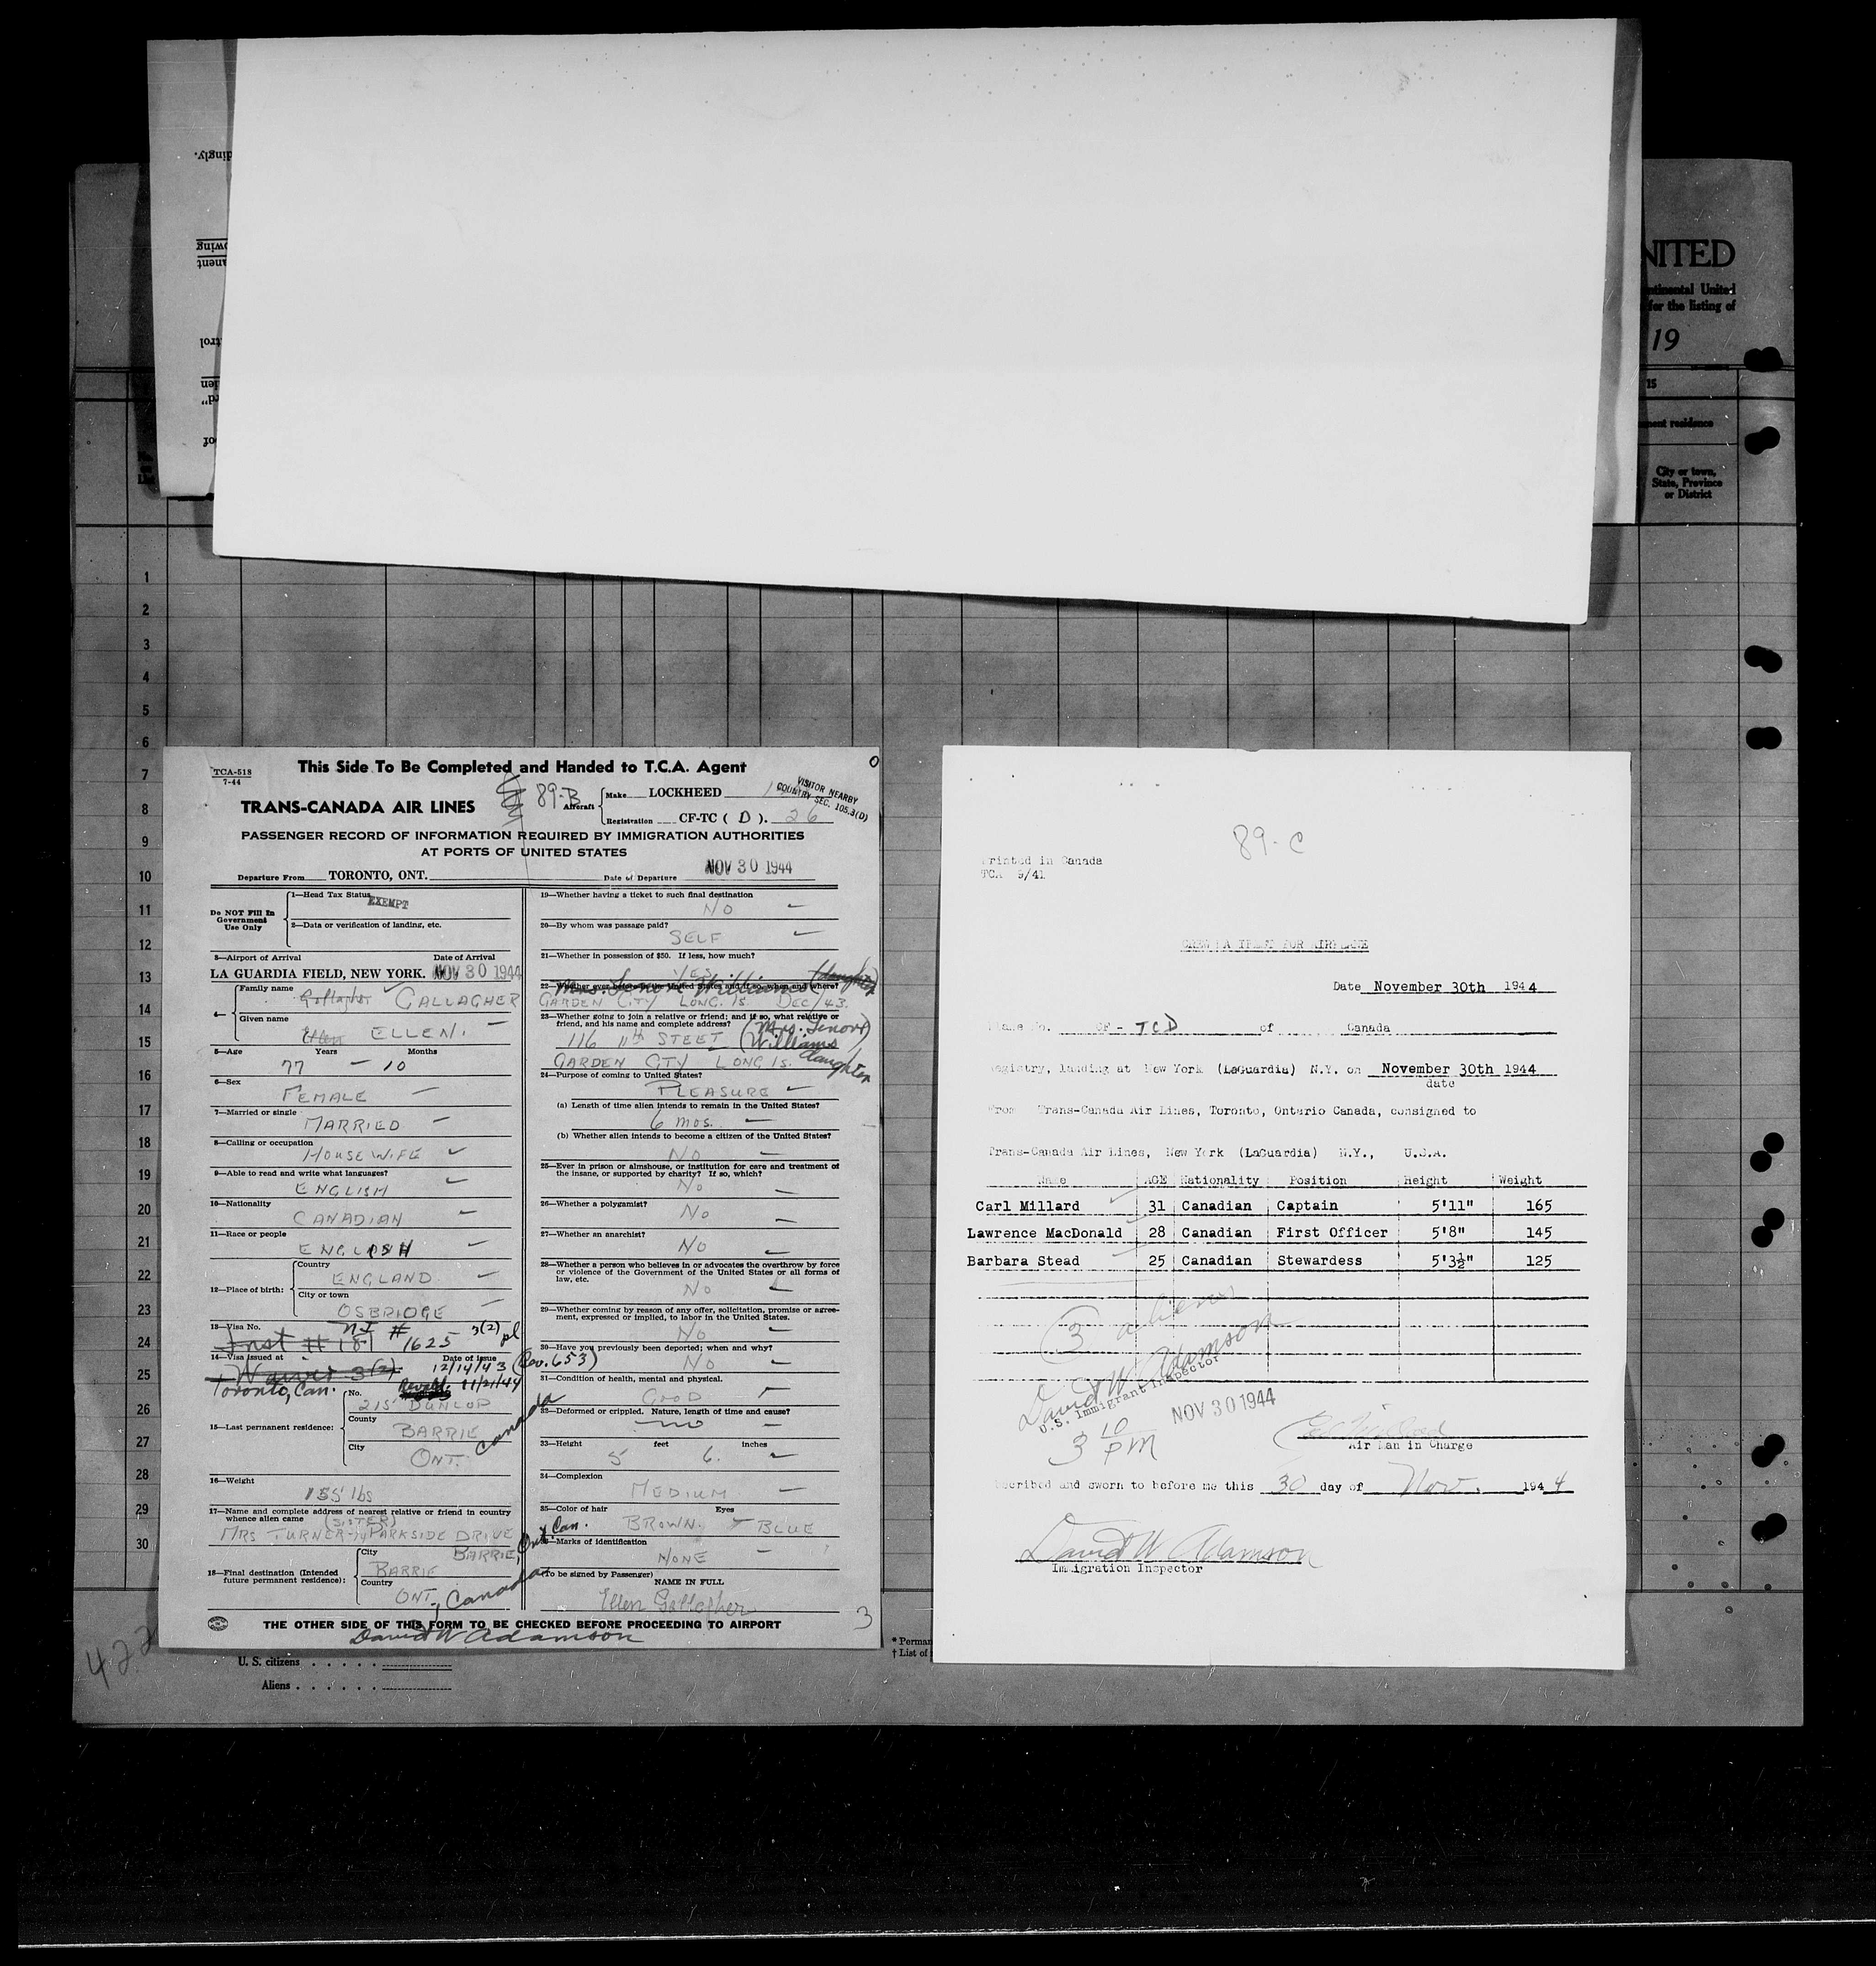 NITED
ntinental United
for the listing of
19
15
nent residence
City or town,
State, Province
or District
1
2
3
4
5
6
7
8
9
10
11
12
13
14
15
16
17
18
19
20
21
22
23
24
25
26
27
28
29
30
TCA-518
7-44
This Side To Be Completed and Handed to T.C.A. Agent
TRANS-CANADA AIR LINES
89-B
Aircraft
Make LOCKHEED
Registration CF-TC ( D ). 26
VISITOR NEARBY
COUNTRY SEC. 105.3(D)
PASSENGER RECORD OF INFORMATION REQUIRED BY IMMIGRATION AUTHORITIES
AT PORTS OF UNITED STATES
Departure From TORONTO, ONT. Date of Departure NOV 30 1944
Do NOT Fill In
Government
Use Only
1—Head Tax Status EXEMPT
2—Data or verification of landing, etc.
3—Airport of Arrival Date of Arrival
LA GUARDIA FIELD, NEW YORK. NOV 30 1944
4—
Family name
Gallagher GALLAGHER
Given name
Ellen ELLEN.
5—Age Years Months
77 — 10
6—Sex
FEMALE
7—Married or single
MARRIED
8—Calling or occupation
HOUSEWIFE
9—Able to read and write what languages?
ENGLISH
10—Nationality
CANADIAN
11—Race or people
ENGLISH
12—Place of birth:
Country
ENGLAND
City or town
OSBRIDGE
13—Visa No.
# 1625 3(2) pl
14—Visa issued at Date of issue
Waiver 3(2) 12/14/43 (Rev. 653)
Toronto, Can. 11/21/44
15—Last permanent residence:
No.
215 DUNLOP
County
BARRIE
City
ONT. Canada
16—Weight
155 lbs
17—Name and complete address of nearest relative or friend in country
whence alien came (SISTER)
MRS TURNER PARKSIDE DRIVE
BARRIE, Ont Can.
18—Final destination (Intended
future permanent residence):
City
BARRIE
Country
ONT., Canada
19—Whether having a ticket to such final destination
NO
20—By whom was passage paid?
SELF
21—Whether in possession of $50. If less, how much?
YES
Mrs. Lenore Williams (daughter)
22—Whether ever before in the United States and if so, when and where?
GARDEN CITY LONG. IS. DEC/43.
23—Whether going to join a relative or friend; and if so, what relative or
friend, and his name and complete address? (Mrs. Lenore)
116 11th STEET (Williams
GARDEN CITY LONG IS. daughter
24—Purpose of coming to United States?
PLEASURE
(a) Length of time alien intends to remain in the United States?
6 mos.
(b) Whether alien intends to become a citizen of the United States?
NO
25—Ever in prison or almshouse, or institution for care and treatment of
the insane, or supported by charity? If so, which?
No
26—Whether a polygamist?
No
27—Whether an anarchist?
No
28—Whether a person who believes in or advocates the overthrow by force
or violence of the Government of the United States or all forms of
law, etc.
No
29—Whether coming by reason of any offer, solicitation, promise or agree-
ment, expressed or implied, to labor in the United States.
No
30—Have you previously been deported; when and why?
No
31—Condition of health, mental and physical.
GOOD
32—Deformed or crippled. Nature, length of time and cause?
no
33—Height feet inches
5 6.
34—Complexion
MEDIUM
35—Color of hair Eyes
BROWN. BLUE
36—Marks of identification
NONE
(To be signed by Passenger)
NAME IN FULL
Ellen Gallagher
3
THE OTHER SIDE OF THIS FORM TO BE CHECKED BEFORE PROCEEDING TO AIRPORT
David W Adamson
422
U. S. citizens
Aliens
* Perman
† List of
89-C
Printed in Canada
TCA 9/41
CREW MANIFEST FOR AIRPLANE
Date November 30th 1944
Plane No. CF - TCD of Canada
Registry, landing at New York (LaGuardia) N.Y. on November 30th 1944
date
From Trans-Canada Air Lines, Toronto, Ontario Canada, consigned to
Trans-Canada Air Lines, New York (LaGuardia) N.Y., U.S.A.
Name AGE Nationality Position Height Weight
Carl Millard 31 Canadian Captain 5'11" 165
Lawrence MacDonald 28 Canadian First Officer 5'8" 145
Barbara Stead 25 Canadian Stewardess 5'3½" 125
3 aliens
David W Adamson
U.S. Immigrant Inspector
3 10 PM
NOV 30 1944
Air Man in Charge
scribed and sworn to before me this 30 day of Nov. 1944
David W Adamson
Immigration Inspector